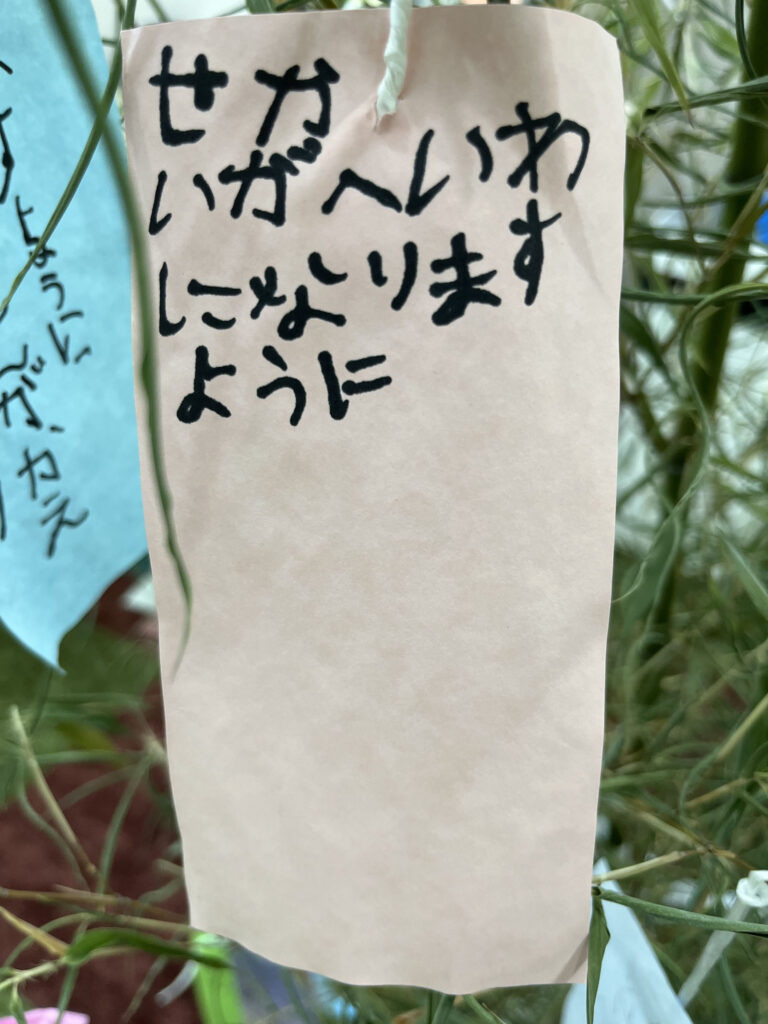 せか
いがへいわ
になります
ように
ように
がかえ